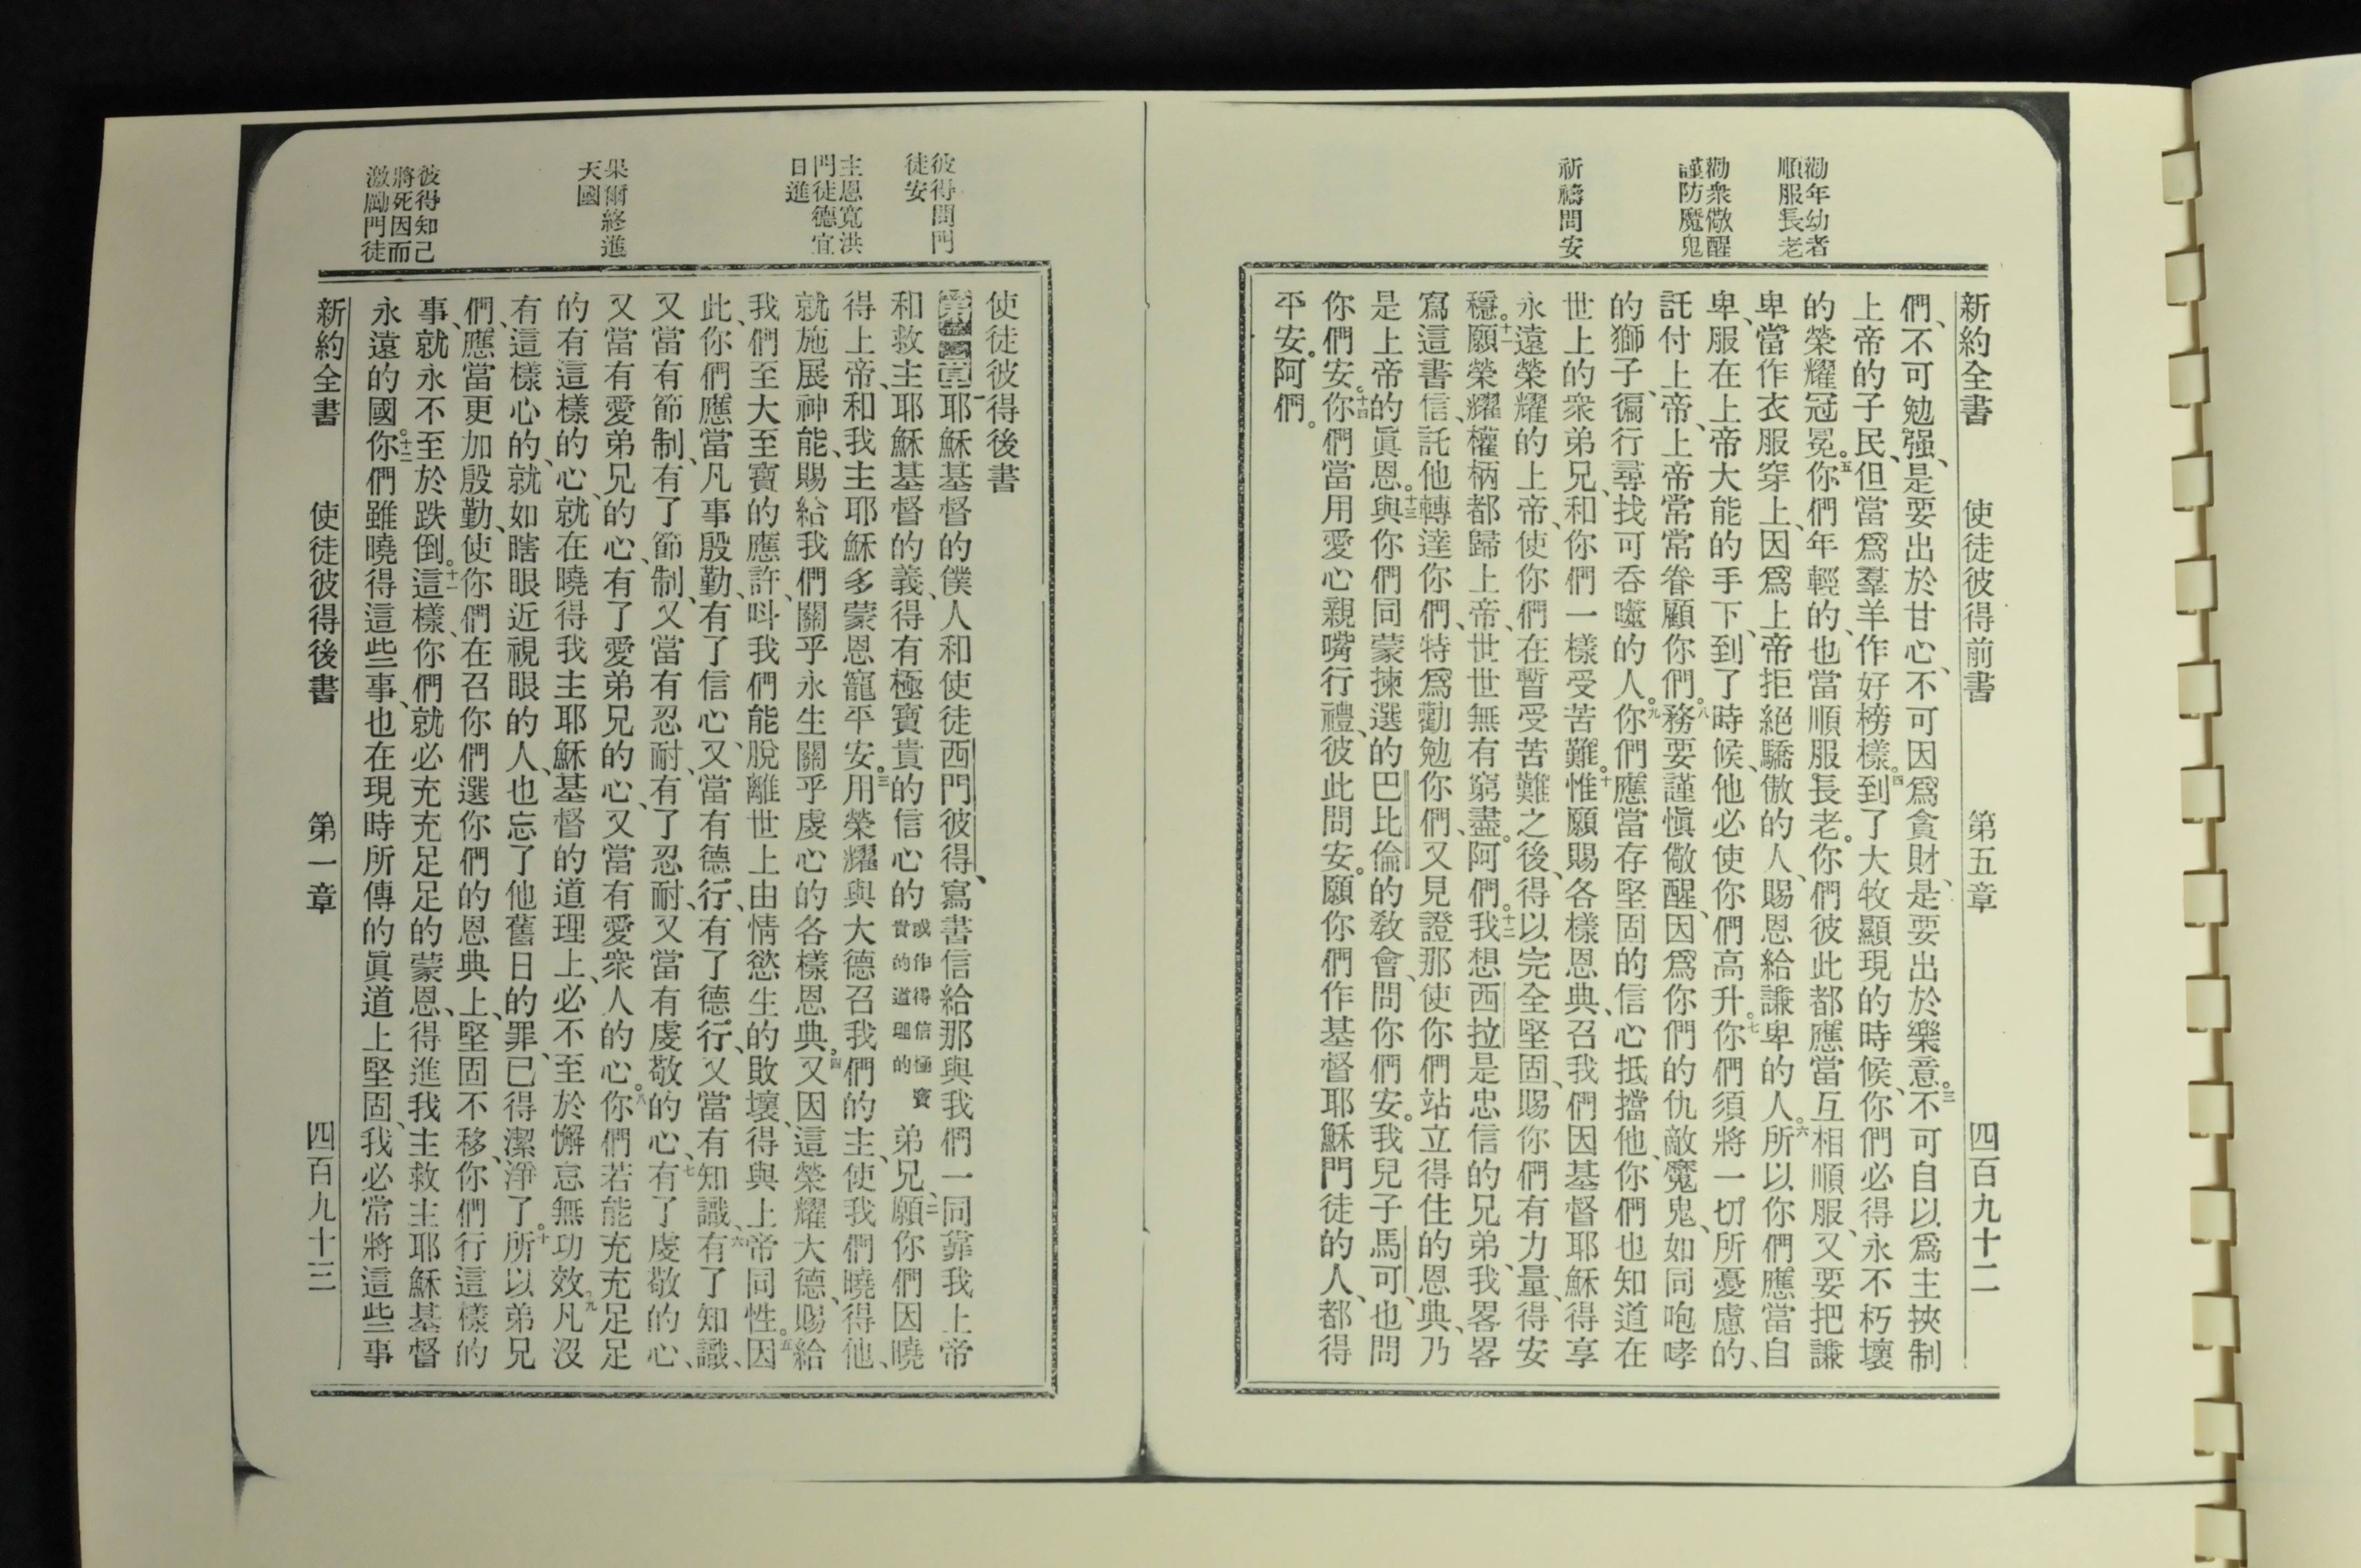 勸年幼者
順服長老
勸衆儆醒
謹防魔鬼
祈禱問安
新約全書 使徒彼得前書 第五章 四百九十二
們、不可勉强、是要出於甘心、不可因爲貪財、是要出於樂意。三不可自以爲主挾制
上帝的子民、但當爲羣羊作好榜樣。四到了大牧顯現的時候、你們必得永不朽壞
的榮耀冠冕。五你們年輕的、也當順服長老。你們彼此都應當互相順服、又要把謙
卑當作衣服穿上、因爲上帝拒絕驕傲的人、賜恩給謙卑的人。六所以你們應當自
卑、服在上帝大能的手下、到了時候、他必使你們高升。七你們須將一切所憂慮的、
託付上帝、上帝常常眷顧你們。八務要謹愼儆醒、因爲你們的仇敵魔鬼、如同咆哮
的獅子、徧行尋找可吞噬的人。九你們應當存堅固的信心抵擋他、你們也知道在
世上的衆弟兄、和你們一樣受苦難。十惟願賜各樣恩典、召我們因基督耶穌得享
永遠榮耀的上帝、使你們在暫受苦難之後、得以完全堅固、賜你們有力量、得安
穩。十一願榮耀權柄都歸上帝、世世無有窮盡。阿們。十二我想西拉是忠信的兄弟、我畧畧
寫這書信、託他轉達你們、特爲勸勉你們、又見證那使你們站立得住的恩典、乃
是上帝的眞恩。十三與你們同蒙揀選的巴比倫的敎會、問你們安。我兒子馬可、也問
你們安。十四你們當用愛心親嘴行禮、彼此問安。願你們作基督耶穌門徒的人、都得
平安。阿們。
彼得問門
徒安
主恩寬洪
門徒德宜
日進
果爾終進
天國
彼得知己
將死因而
激勵門徒
使徒彼得後書
第一章 一耶穌基督的僕人和使徒西門彼得、寫書信給那與我們一同靠我上帝
和救主耶穌基督的義、得有極寶貴的信心的 或作得信極寶貴的道理的 弟兄、二願你們因曉
得上帝、和我主耶穌多蒙恩寵平安。三用榮耀與大德召我們的主、使我們曉得他、
就施展神能、賜給我們關乎永生關乎虔心的各樣恩典。四又因這榮耀大德、賜給
我們至大至寶的應許、呌我們能脫離世上由情慾生的敗壞、得與上帝同性。五因
此、你們應當凡事殷勤、有了信心、又當有德行、有了德行、又當有知識、六有了知識、
又當有節制、有了節制、又當有忍耐、有了忍耐、又當有虔敬的心、七有了虔敬的心、
又當有愛弟兄的心、有了愛弟兄的心、又當有愛衆人的心。八你們若能充充足足
的有這樣的心、就在曉得我主耶穌基督的道理上、必不至於懈怠無功效。九凡沒
有這樣心的、就如瞎眼近視眼的人、也忘了他舊日的罪、已得潔淨了。十所以弟兄
們、應當更加殷勤、使你們在召你們選你們的恩典上、堅固不移、你們行這樣的
事、就永不至於跌倒。十一這樣、你們就必充充足足的蒙恩、得進我主救主耶穌基督
永遠的國。十二你們雖曉得這些事、也在現時所傳的眞道上堅固、我必常將這些事
新約全書 使徒彼得後書 第一章 四百九十三